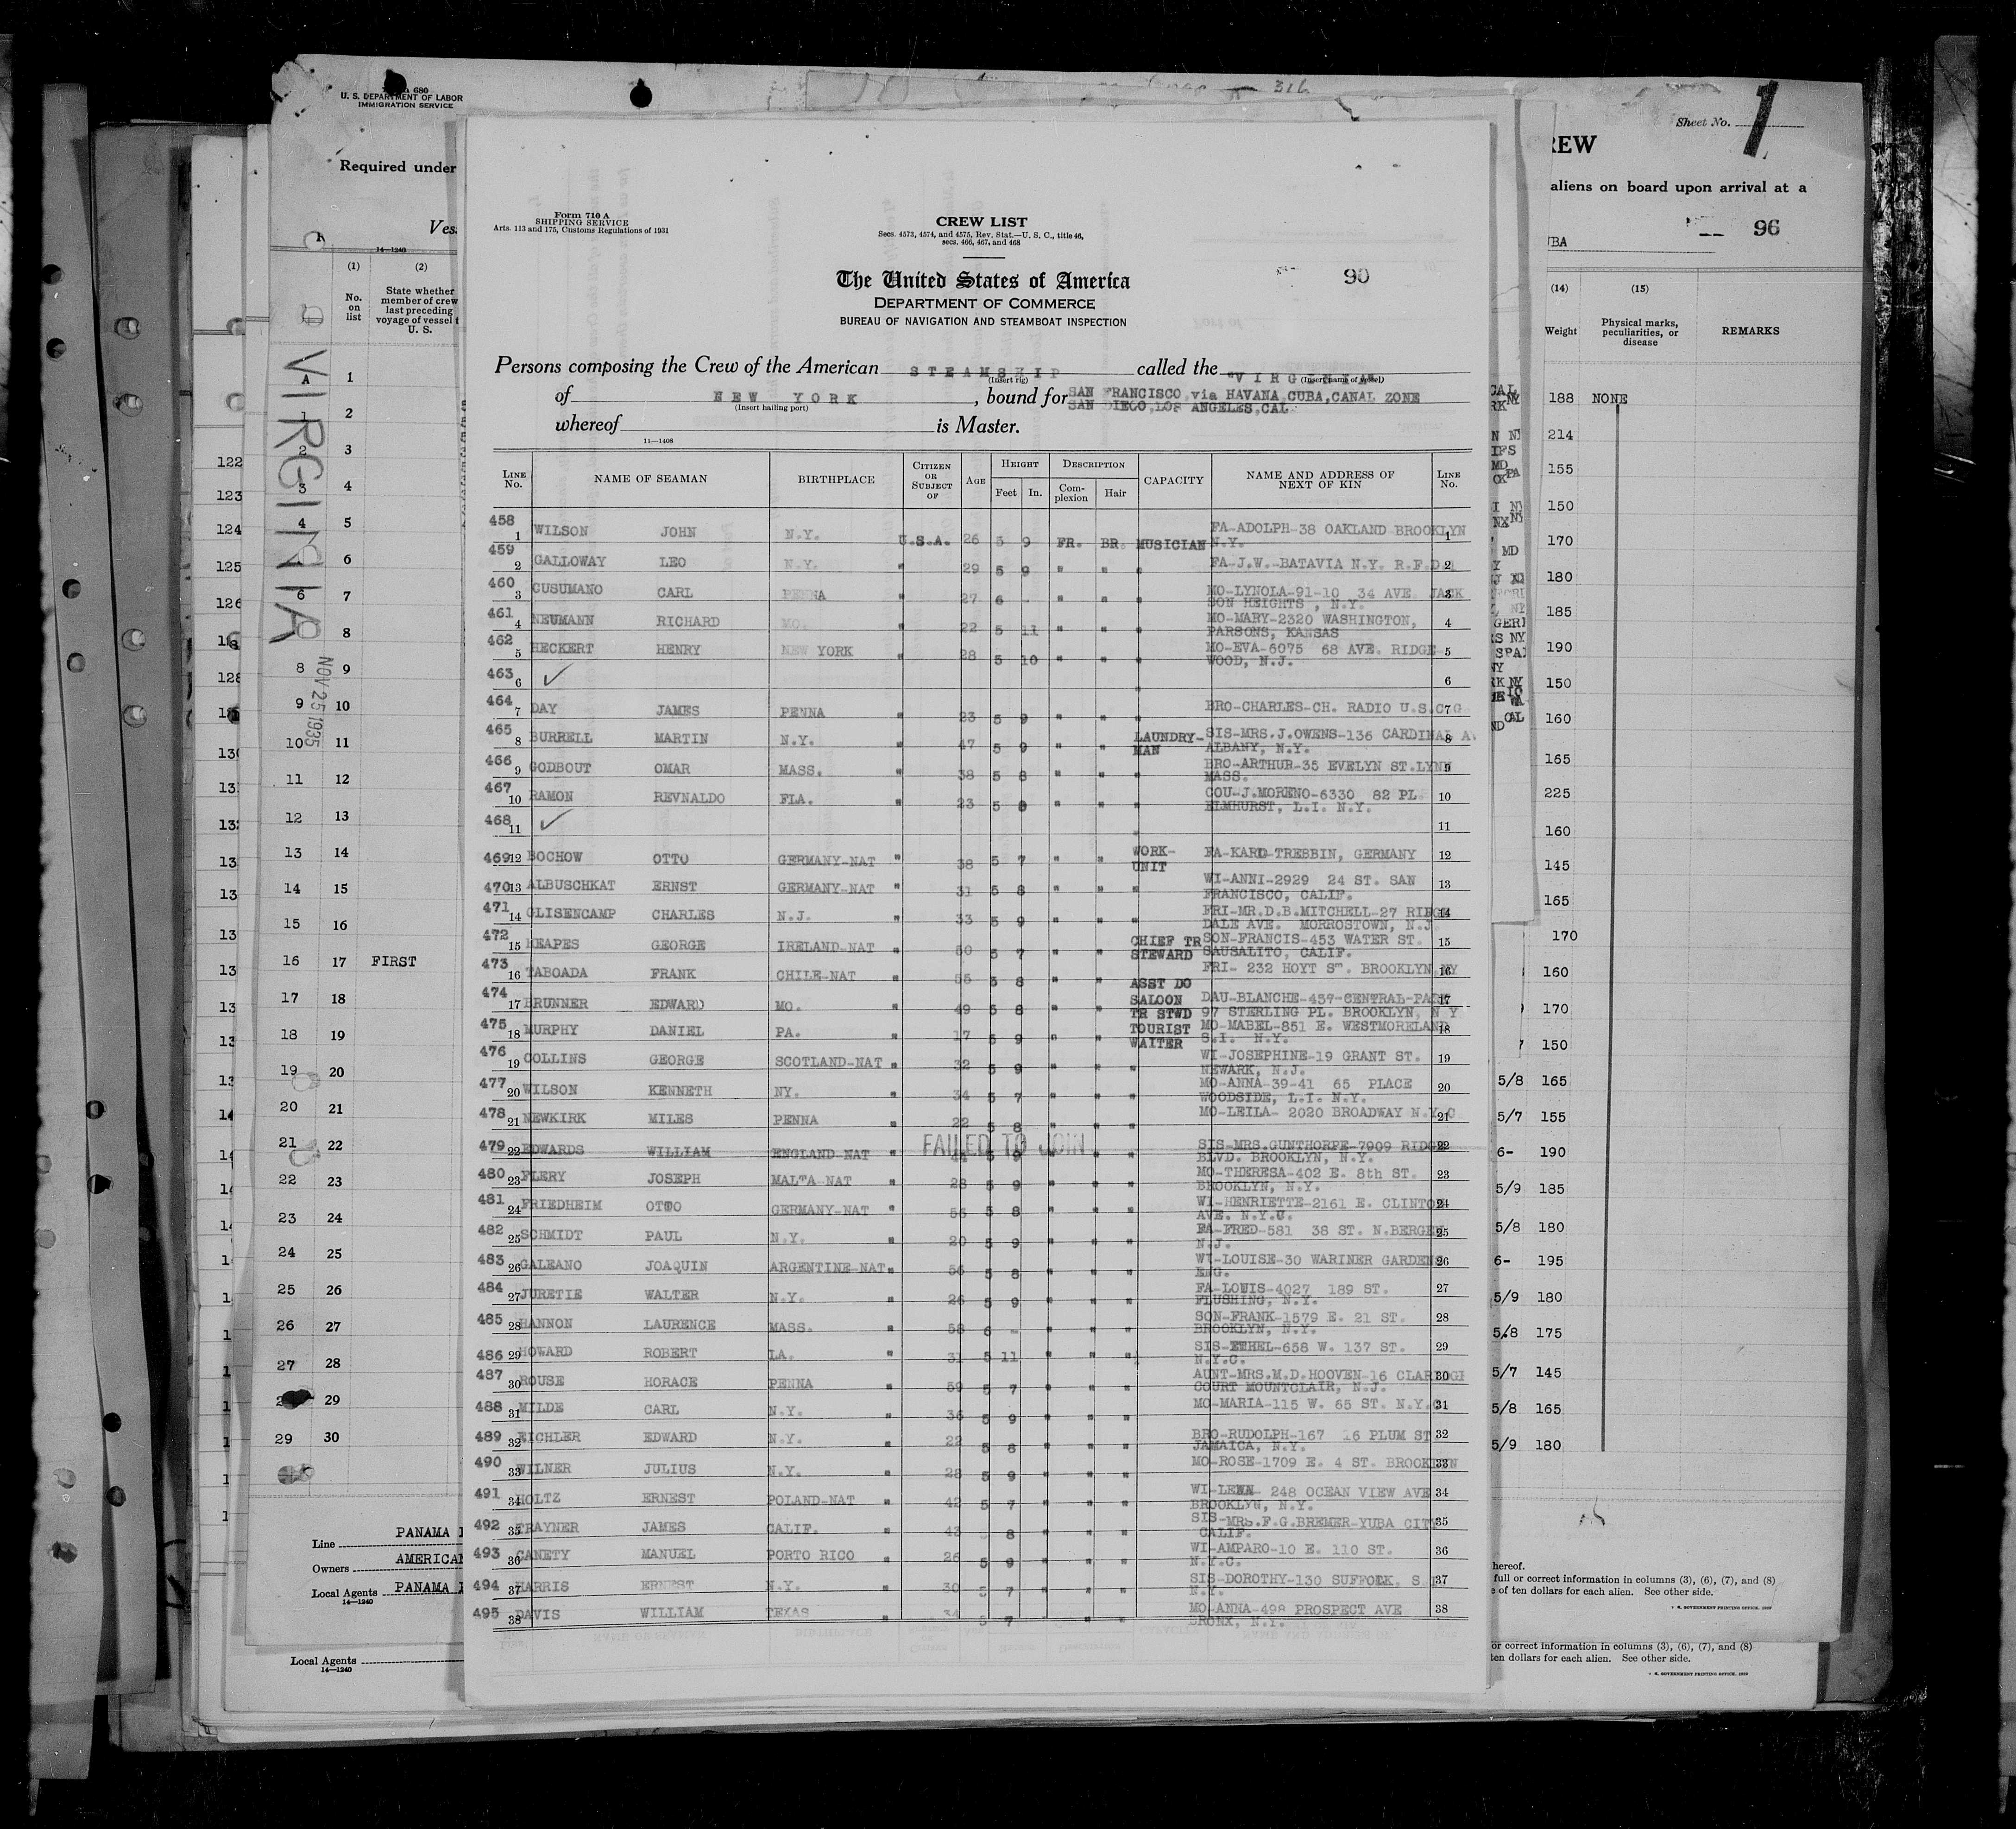 316
Form 680
U. S. DEPARTMENT OF LABOR
IMMIGRATION SERVICE
Required under
Sheet No. 1
aliens on board upon arrival at a
96
Form 710 A
SHIPPING SERVICE
Arts. 113 and 175, Customs Regulations of 1931
CREW LIST
Secs. 4573, 4574, and 4575, Rev. Stat.—U. S. C., title 46,
secs. 466, 467, and 468
The United States of America
90
DEPARTMENT OF COMMERCE
BUREAU OF NAVIGATION AND STEAMBOAT INSPECTION
Persons composing the Crew of the American STEAMSHIP called the "VIRGINIA"
(Insert rig) (Insert name of vessel)
of NEW YORK, bound for SAN FRANCISCO via HAVANA, CUBA, CANAL ZONE
(Insert hailing port) SAN DIEGO, LOS ANGELES, CAL.
whereof is Master.
11—1408
LINE No. NAME OF SEAMAN BIRTHPLACE CITIZEN OR SUBJECT OF AGE HEIGHT Feet In. DESCRIPTION Complexion Hair CAPACITY NAME AND ADDRESS OF NEXT OF KIN LINE No.
458 1 WILSON JOHN N.Y. U.S.A. 26 5 9 FR. BR. MUSICIAN FA-ADOLPH-38 OAKLAND BROOKLYN 1
N.Y.
459 2 GALLOWAY LEO N.Y. " 29 5 9 " " " FA-J.W.-BATAVIA N.Y. R.F.D. 2
460 3 CUSUMANO CARL PENNA " 27 6 - " " " MO-LYNOLA-91-10 34 AVE. JACK 3
SON HEIGHTS, N.Y.
461 4 NEUMANN RICHARD MO. " 22 5 11 " " " MO-MARY-2320 WASHINGTON, 4
PARSONS, KANSAS
462 5 HECKERT HENRY NEW YORK " 28 5 10 " " " MO-EVA-6075 68 AVE. RIDGE 5
WOOD, N.J.
463 6 ✓ 6
464 7 DAY JAMES PENNA " 23 5 9 " " " BRO-CHARLES-CH. RADIO U.S.C.G. 7
465 8 BURRELL MARTIN N.Y. " 47 5 9 " " LAUNDRY-MAN SIS-MRS.J.OWENS-136 CARDINAL AV 8
ALBANY, N.Y.
466 9 GODBOUT OMAR MASS. " 38 5 8 " " " BRO-ARTHUR-35 EVELYN ST.LYNN 9
MASS.
467 10 RAMON REVNALDO FLA. " 23 5 8 " " " COU-J.MORENO-6330 82 PL. 10
ELMHURST, L.I. N.Y.
468 11 ✓ 11
469 12 BOCHOW OTTO GERMANY-NAT " 38 5 7 " " WORK-UNIT FA-KARD-TREBBIN, GERMANY 12
470 13 ALBUSCHKAT ERNST GERMANY-NAT " 31 5 8 " " " WI-ANNI-2929 24 ST. SAN 13
FRANCISCO, CALIF.
471 14 OLISENCAMP CHARLES N.J. " 33 5 9 " " " FRI-MR.D.B.MITCHELL-27 RIDGE 14
DALE AVE. MORROSTOWN, N.J.
472 15 HEAPES GEORGE IRELAND-NAT " 50 5 7 " " CHIEF TR STEWARD SON-FRANCIS-453 WATER ST. 15
SAUSALITO, CALIF.
473 16 TABOADA FRANK CHILE-NAT " 55 5 8 " " ASST DO FRI- 232 HOYT ST. BROOKLYN NY 16
474 17 BRUNNER EDWARD MO. " 49 5 8 " " SALOON TR STWD DAU-BLANCHE-457-CENTRAL-PARK 17
97 STERLING PL. BROOKLYN, N Y
475 18 MURPHY DANIEL PA. " 17 5 9 " " TOURIST WAITER MO-MABEL-851 E. WESTMORELAND 18
S.I. N.Y.
476 19 COLLINS GEORGE SCOTLAND-NAT " 32 5 9 " " WI-JOSEPHINE-19 GRANT ST. 19
NEWARK, N.J.
477 20 WILSON KENNETH NY. " 34 5 7 " " MO-ANNA-39-41 65 PLACE 20
WOODSIDE, L.I. N.Y.
478 21 NEWKIRK MILES PENNA " 22 5 8 " " MO-LEILA- 2020 BROADWAY N.Y.C 21
479 22 EDWARDS WILLIAM ENGLAND-NAT FAILED TO JOIN 44 5 9 " " SIS-MRS.GUNTHORPE-7909 RIDGE 22
BLVD. BROOKLYN, N.Y.
480 23 FLERY JOSEPH MALTA-NAT " 28 5 9 " " MO-THERESA-402 E. 8th ST. 23
BROOKLYN, N.Y.
481 24 FRIEDHEIM OTTO GERMANY-NAT " 55 5 8 " " WI-HENRIETTE-2161 E. CLINTON 24
AVE. N.Y.C.
482 25 SCHMIDT PAUL N.Y. " 20 5 9 " " FA-FRED-581 38 ST. N.BERGEN 25
N.J.
483 26 GALEANO JOAQUIN ARGENTINE-NAT " 56 5 8 " " WI-LOUISE-30 WARINER GARDENS 26
ENG.
484 27 JURETIE WALTER N.Y. " 26 5 9 " " FA-LOUIS-4027 189 ST. 27
FLUSHING, N.Y.
485 28 HANNON LAURENCE MASS. " 58 6 - " " SON-FRANK-1579 E. 21 ST. 28
BROOKLYN, N.Y.
486 29 HOWARD ROBERT LA. " 31 5 11 " " SIS-ETHEL-658 W. 137 ST. 29
N.Y.C.
487 30 ROUSE HORACE PENNA " 59 5 7 " " AUNT-MRS.M.D.HOOVEN-16 30
COURT MOUNTCLAIR, N.J.
488 31 MILDE CARL N.Y. " 36 5 9 " " MO-MARIA-115 W. 65 ST. N.Y.C 31
489 32 EICHLER EDWARD N.Y. " 22 5 8 " " BRO-RUDOLPH-167 16 PLUM ST 32
JAMAICA, N.Y.
490 33 WILNER JULIUS N.Y. " 28 5 9 " " MO-ROSE-1709 E. 4 ST. BROOKLYN 33
491 34 HOLTZ ERNEST POLAND-NAT " 42 5 7 " " WI-LENA- 248 OCEAN VIEW AVE 34
BROOKLYN, N.Y.
492 35 TRAYNER JAMES CALIF. " 43 8 " " SIS-MRS.F.G.BREMER-YUBA CITY 35
CALIF.
493 36 CANETY MANUEL PORTO RICO " 26 5 9 " " WI-AMPARO-10 E. 110 ST. 36
N.Y.C.
494 37 HARRIS ERNEST N.Y. " 30 5 7 " " SIS-DOROTHY-130 SUFFOLK. S 37
N.Y.
495 38 DAVIS WILLIAM TEXAS " 34 5 7 " " MO-ANNA-498 PROSPECT AVE 38
BRONX, N.Y.
VIRGINIA
NOV 25 1935
(1) No. on list
(2) State whether member of crew last preceding voyage of vessel U. S.
17 FIRST
(14) Weight
(15) Physical marks, peculiarities, or disease
REMARKS
188 NONE
214
155
150
170
180
185
190
150
160
165
225
160
145
165
170
160
170
150
5/8 165
5/7 155
6- 190
5/9 185
5/8 180
6- 195
5/9 180
5/8 175
5/7 145
5/8 165
5/9 180
Line PANAMA
Owners AMERICAN
Local Agents PANAMA
14—1240
Local Agents
14—1240
full or correct information in columns (3), (6), (7), and (8)
of ten dollars for each alien. See other side.
U. S. GOVERNMENT PRINTING OFFICE
or correct information in columns (3), (6), (7), and (8)
ten dollars for each alien. See other side.